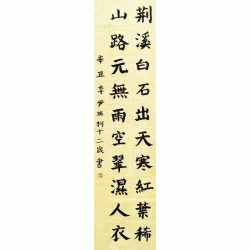 荆溪白石出天寒紅葉稀
山路元無雨空翠濕人衣
辛丑李尹 十二歲書